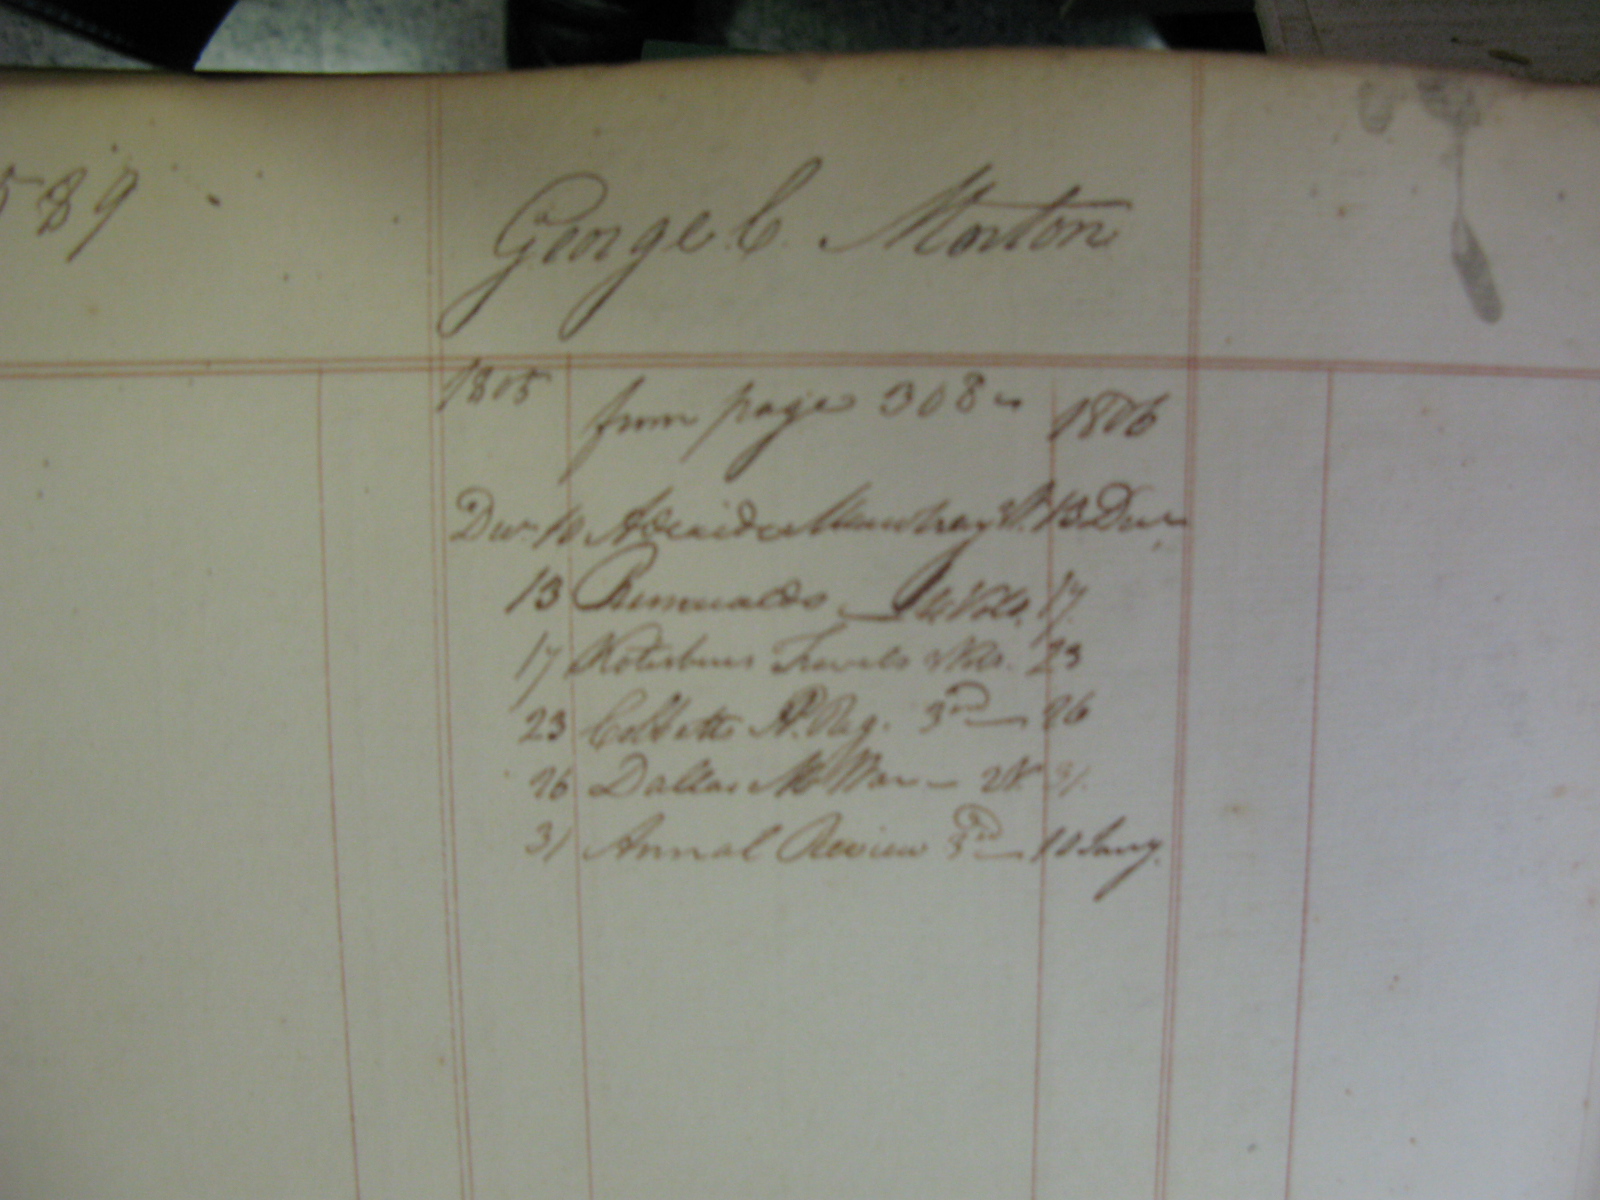 589
George C. Morton
1805 from page 308 1806
Decr 10 Adelaide Mowbray 13 Decr
13 Romualdo Vols. 17
17 Kotzebues Travels Vols. 23
23 Cobbetts P. Reg. 3rd 26
26 Dallas M War 31
31 Annal Review 3rd 10 Jany.